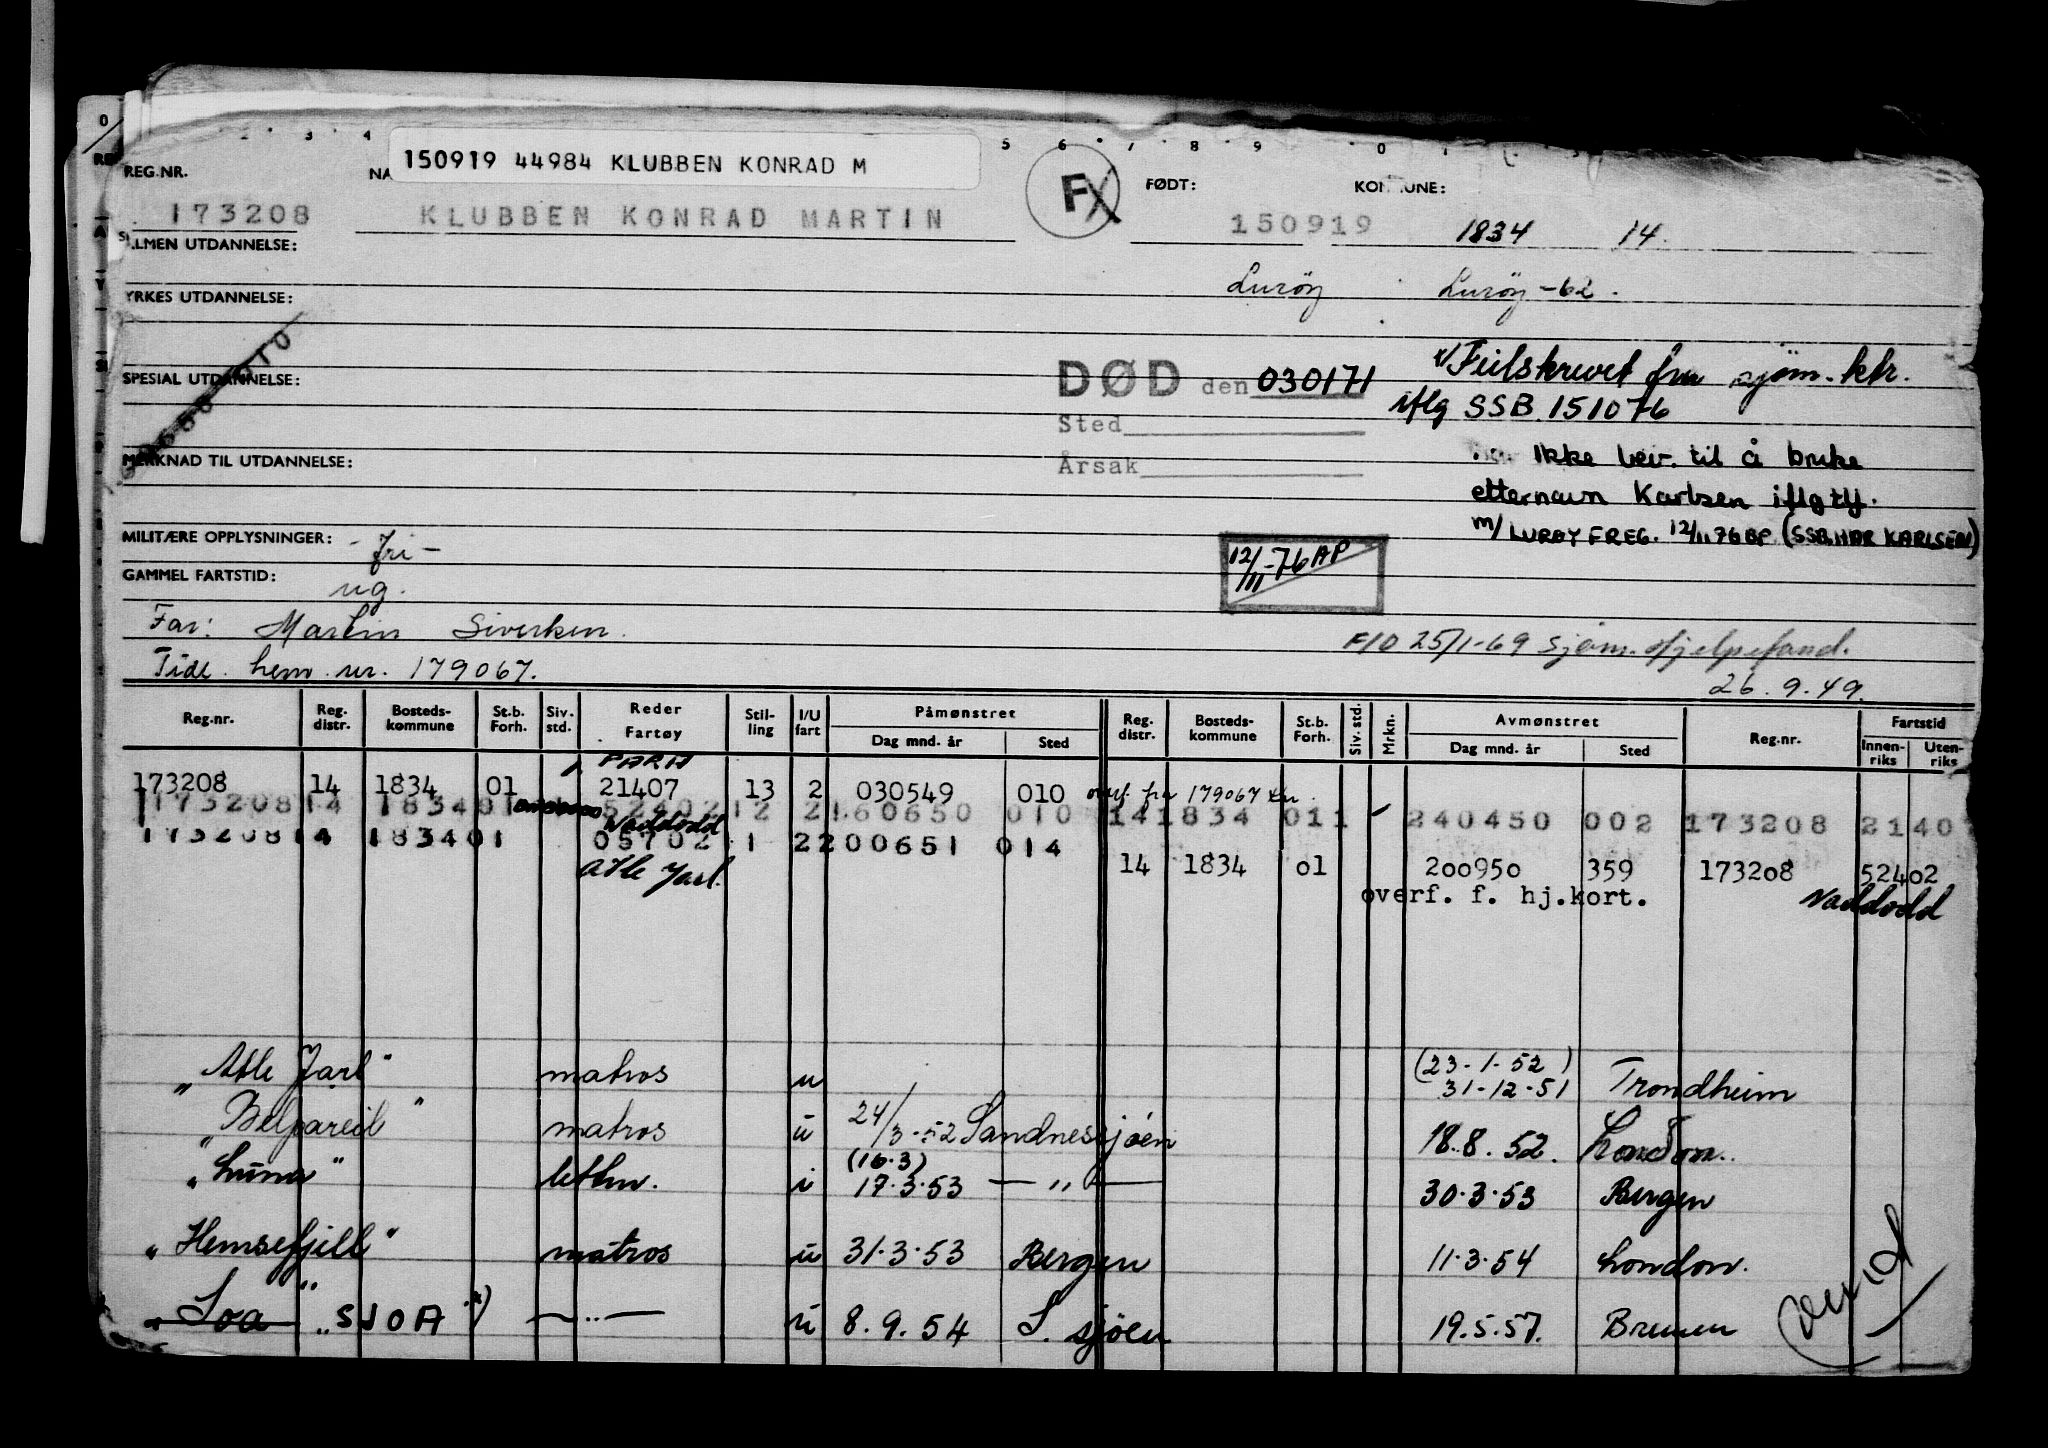 150919 44984 KLUBBEN KONRAD M
REG.NR. NA FØDT: KOMMUNE:
173208 KLUBBEN KONRAD MARTIN F 150919 1834 14.
ALLMEN UTDANNELSE:
Lurøy Lurøy -62.
YRKES UTDANNELSE:
SPESIAL UTDANNELSE:
DØD den 030171
Sted
Årsak
x/ Feilskrevet fra sjøm. ktr.
iflg SSB 151076
Ikke bev. til å bruke
etternavn Karlsen iflg tlf.
m/ LURØY F REG. 12/11 76 AP (SSB HAR KARLSEN)
12/11-76 AP
MERKNAD TIL UTDANNELSE:
MILITÆRE OPPLYSNINGER: - fri -
GAMMEL FARTSTID: ug.
Far: Martin Sivertsen.
F/O 25/1-69 Sjøm. Hjelpefond.
Tidl. hem. nr. 179067. 26.9.49.
Reg.nr. Reg. distr. Bosteds-kommune St.b. Forh. Siv. std. Reder Fartøy Stil-ling I/U fart Påmønstret Dag mnd. år Sted Reg. distr. Bosteds-kommune St.b. Forh. Siv. std. Mrkn. Avmønstret Dag mnd. år Sted Reg.nr. Fartstid Innen-riks Uten-riks
FARIA
173208 14 1834 01 21407 13 2 030549 010 overf. fra 179067
173208 14 1834 01 52402 12 2 160650 010 14 1834 011 240450 002 173208 2140
Naddodd
173208 14 1834 01 05702 1 2 200651 014
Atle Jarl. 14 1834 01 200950 359 173208 52402
overf. f. hj.kort. Naddodd
"Atle Jarl" matros u (23-1-52) 31-12-51 Trondheim
"Belpareil" matros u 24/3-52 Sandnessjøen 18.8.52. London.
"Luna" lettm. i (16.3) 17.3.53 — " — 30.3.53 Bergen
"Hemsefjell" matros u 31.3.53 Bergen 11.3.54 London.
"Soa" "SJOA" x) — " — u 8.9.54 S. sjøen 19.5.57. Bremen